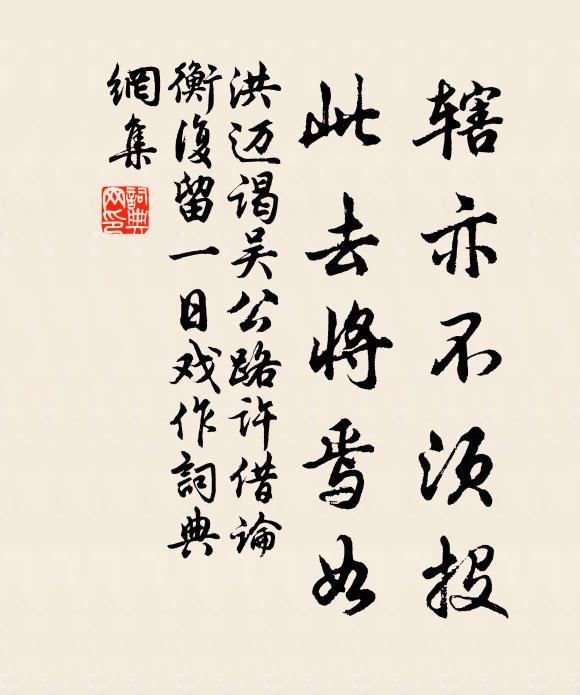 辖亦不须投
此去将焉如
洪迈谒吴公路许借论
衡复留一日戏作詞典
網集
詞典網印